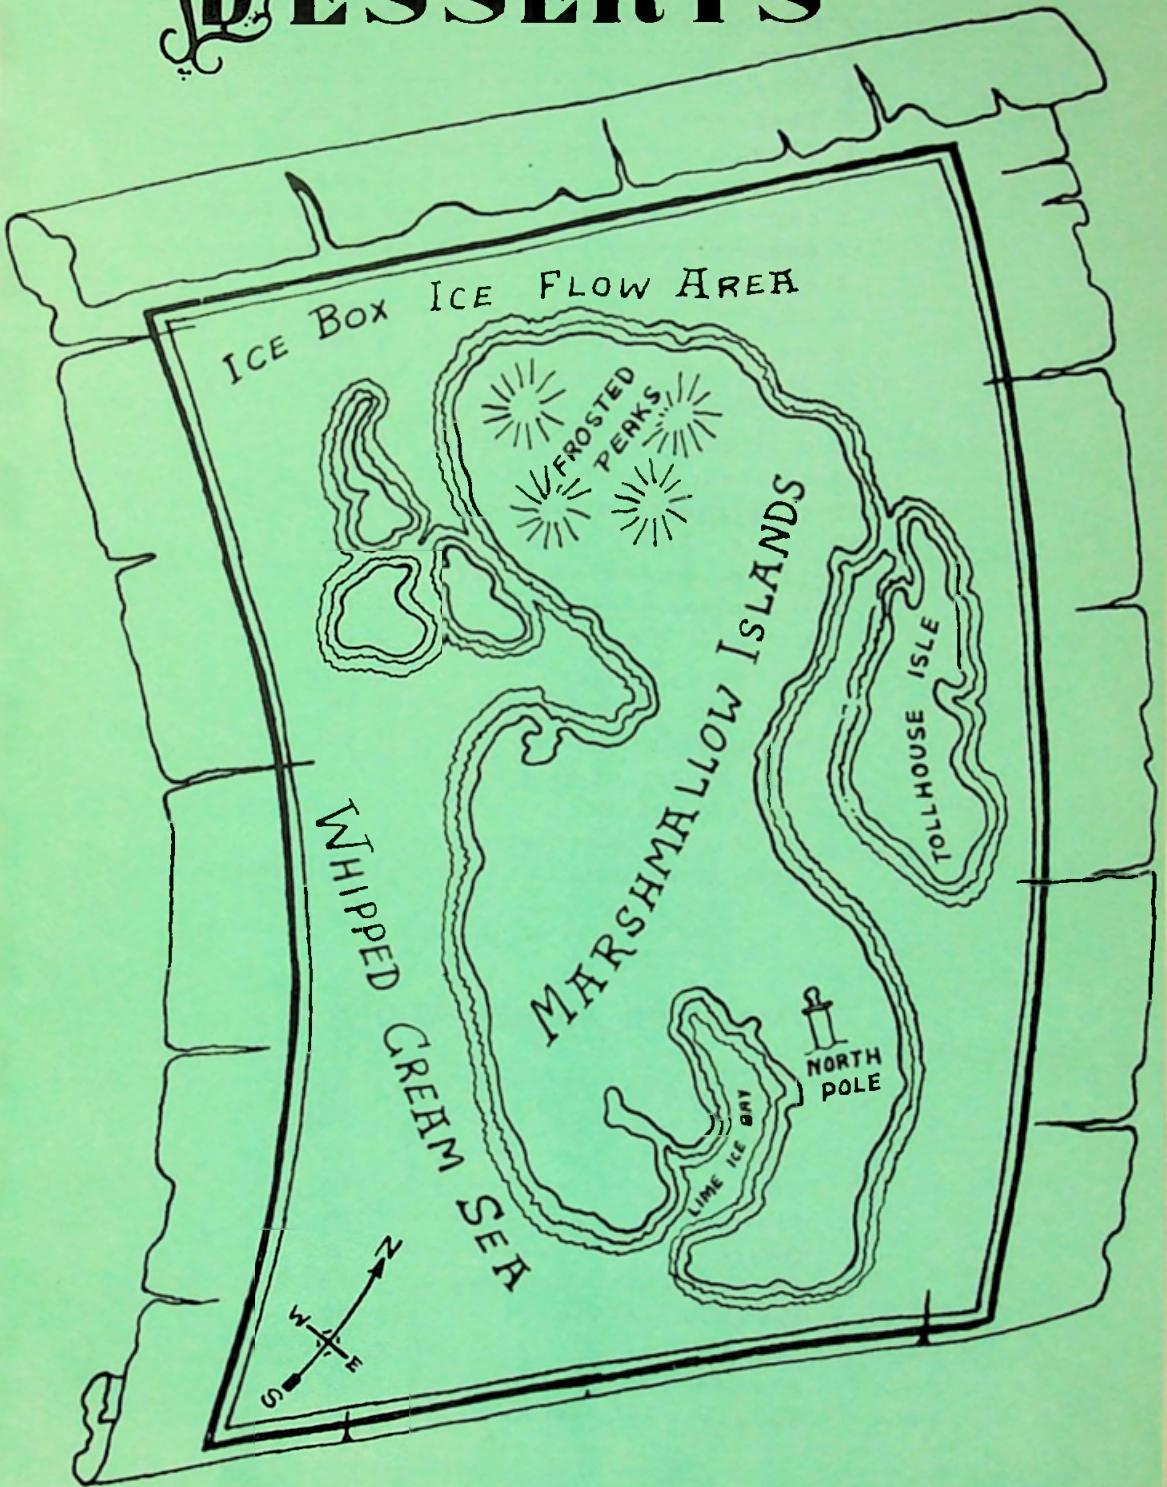 DESSERTS
ICE BOX ICE FLOW AREA
FROSTED
PEAKS
MARSHMALLOW ISLANDS
TOLLHOUSE ISLE
WHIPPED CREAM SEA
NORTH
POLE
LIME ICE BAY
N
W
E
S